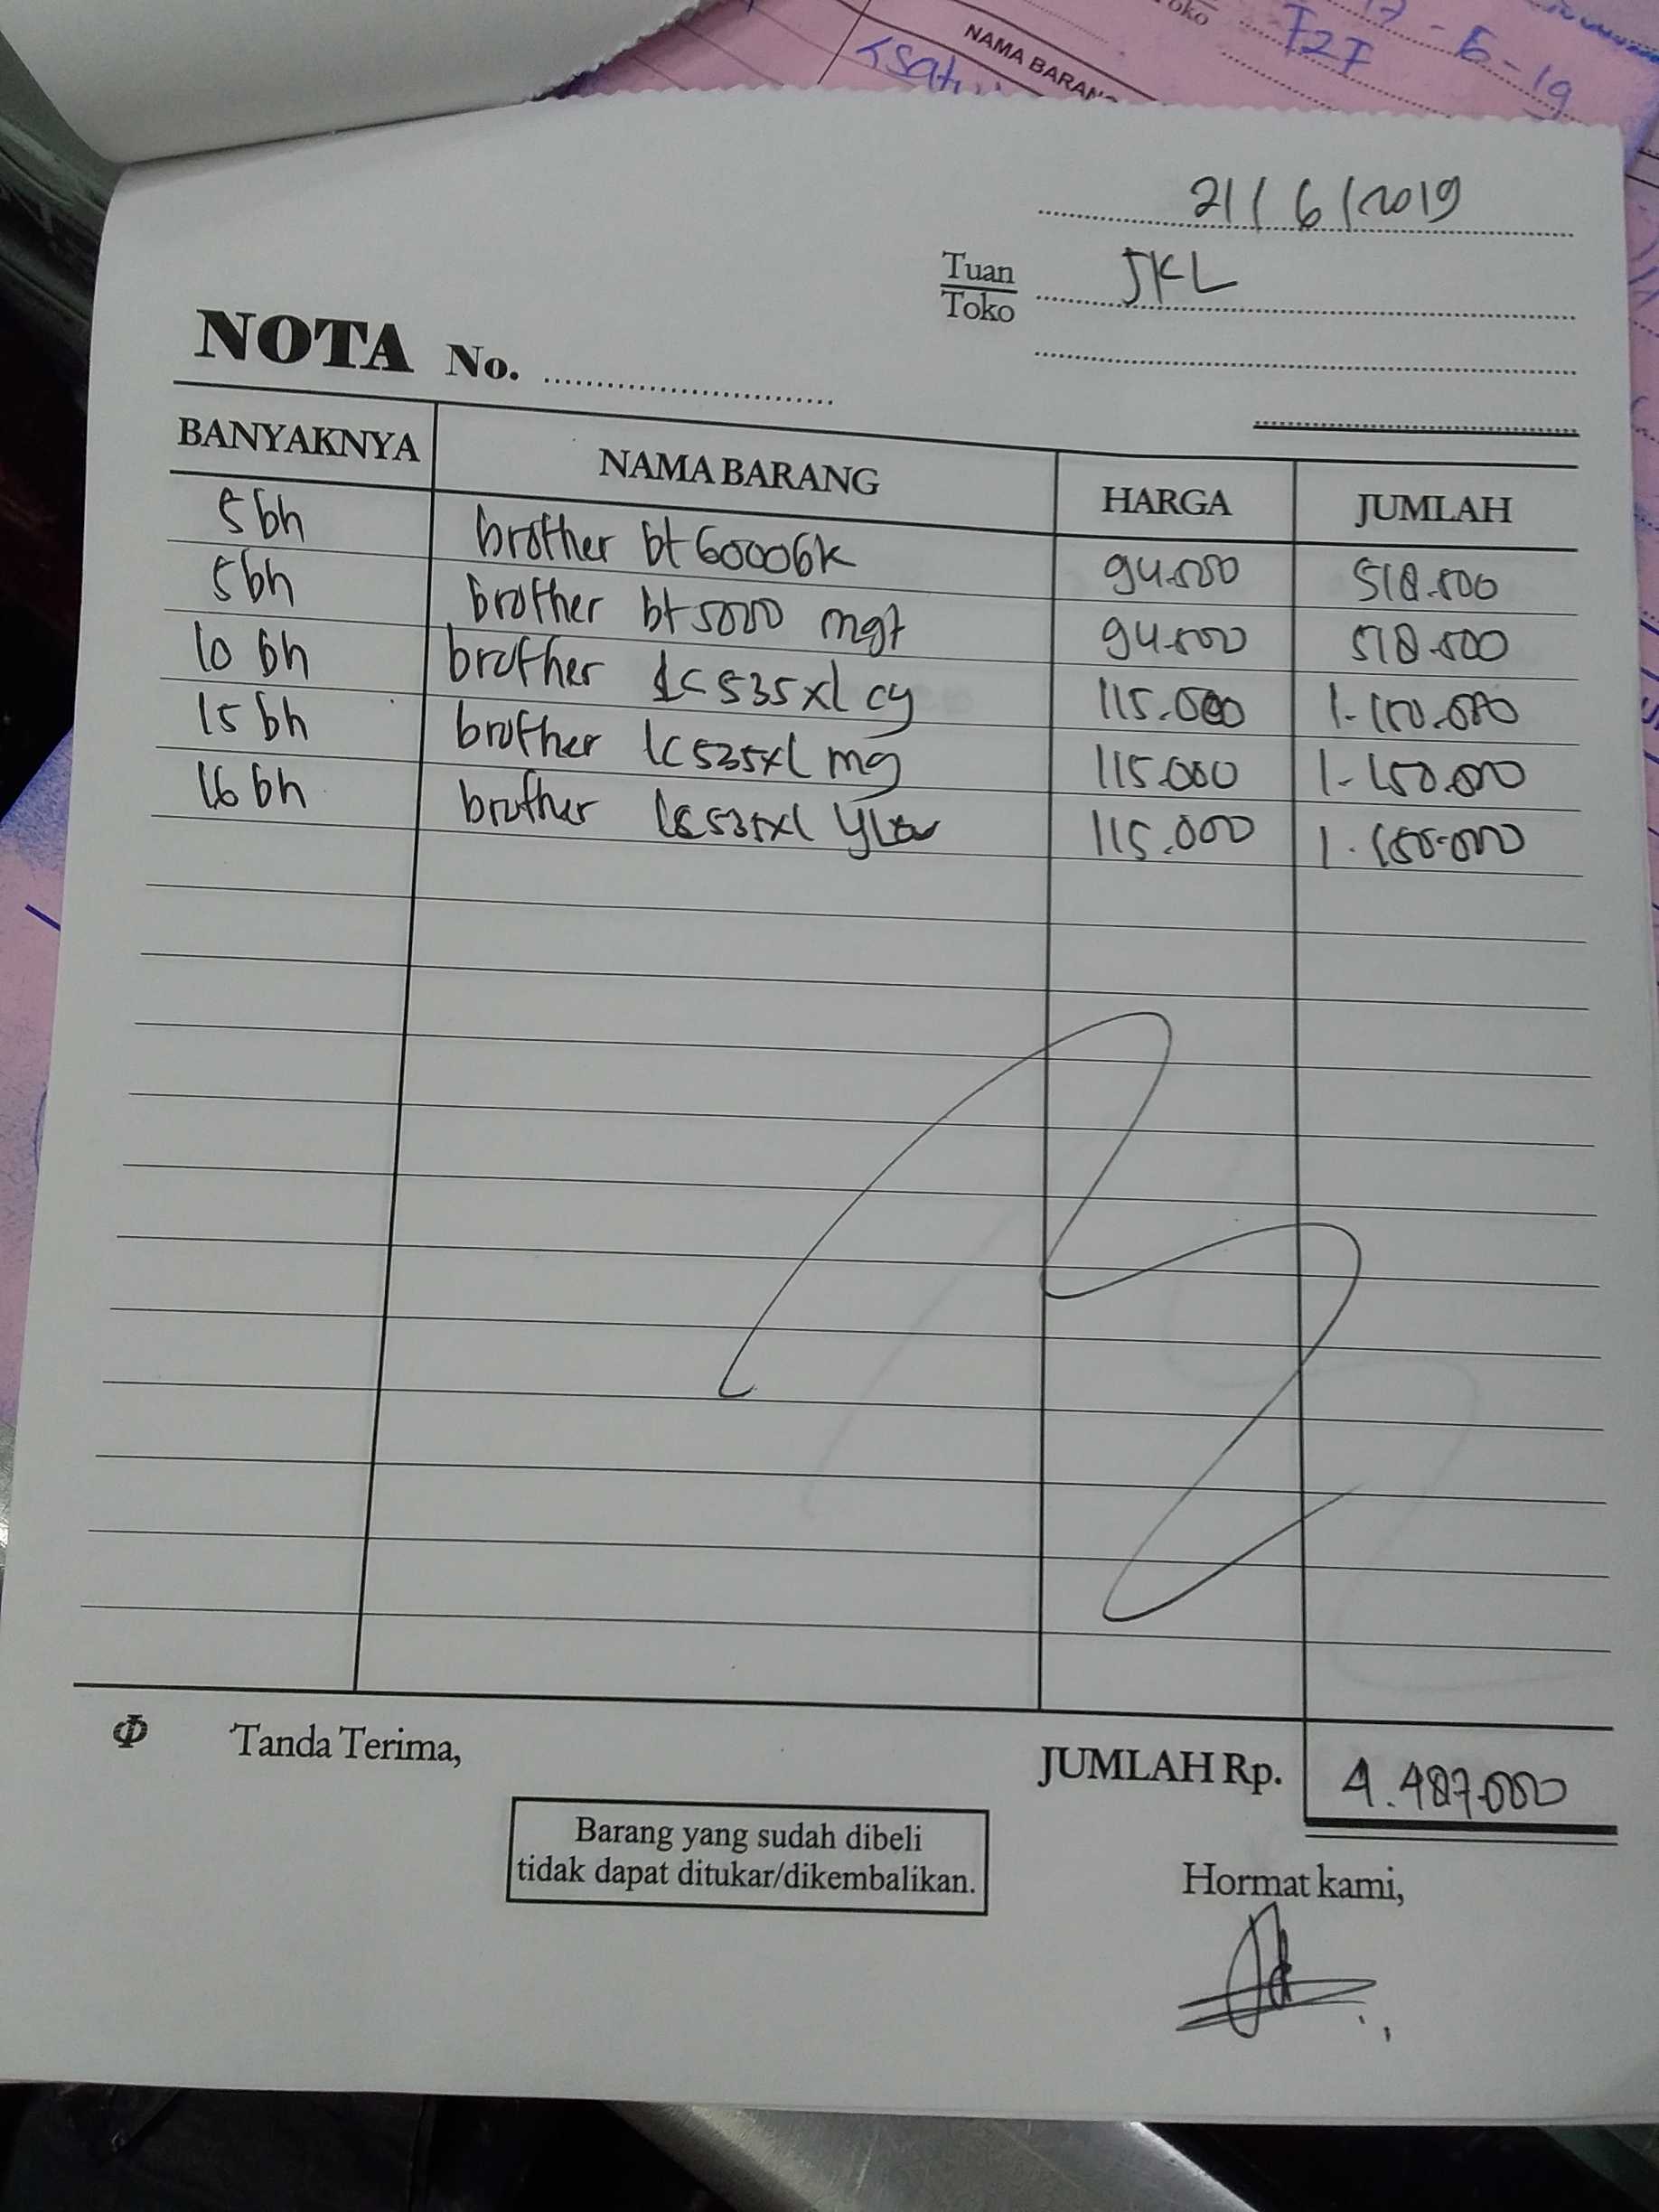 NAMA BARANG
Toko
727
21/6/2019
Tuan
Toko
JKL
NOTA No.
BANYAKNYA NAMA BARANG HARGA JUMLAH
5 bh brother bt 6000bk 94.500 518.500
5 bh brother bt 5000 mgt 94.500 518.500
10 bh brother lc 535xl cy 115.000 1.150.000
15 bh brother lc 535xl mg 115.000 1.150.000
16 bh brother lc 535xl 115.000 1.150.000
Tanda Terima,
JUMLAH Rp. 4.487.000
Barang yang sudah dibeli
tidak dapat ditukar/dikembalikan.
Hormat kami,